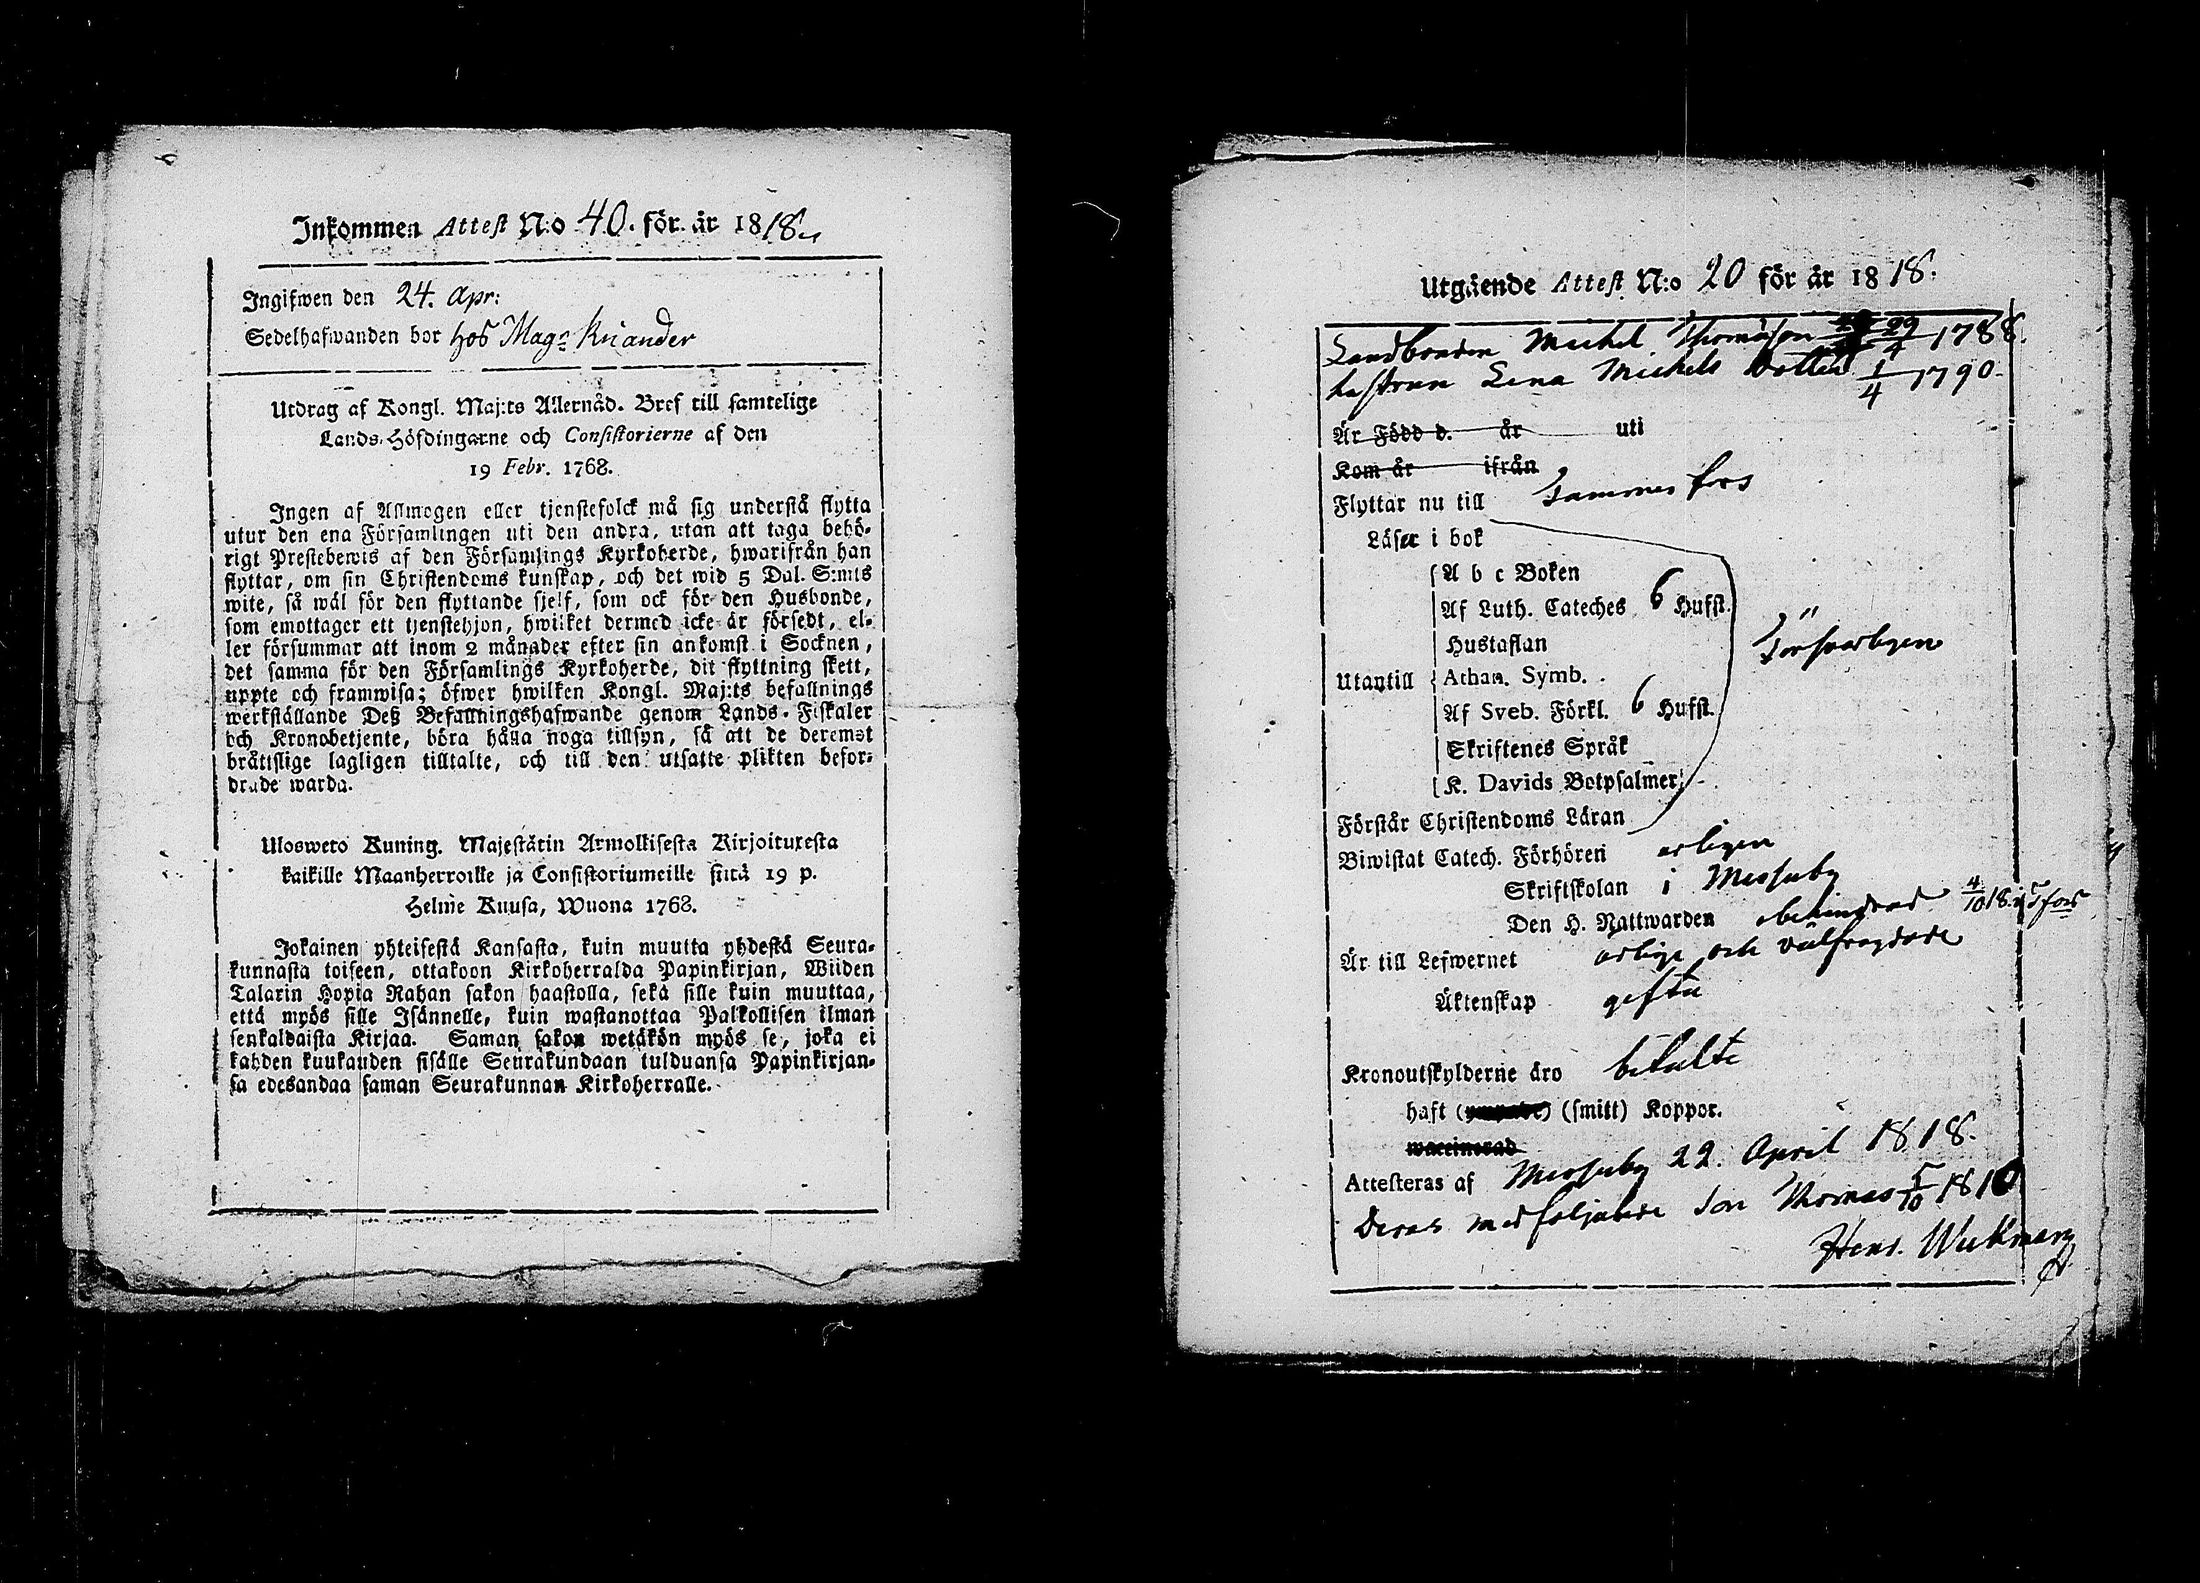 Inkommen Attest N:o 40. för år 1818.
Ingifwen den 24. Apr:
Sedelhafwanden bor hos Mag: Kriander
Utdrag af Kongl. Maj:ts Allernåd. Bref till samtelige
Lands-Höfdingarne och Consistorierne af den
19 Febr. 1768.
Ingen af Allmogen eller tjenstefolck må sig understå flytta
utur den ena Församlingen uti den andra, utan att taga behö-
rigt Prestebewis af den Församlings Kyrkoherde, hwarifrån han
flyttar, om sin Christendoms kunskap, och det wid 5 Dal. S:mts
wite, så wäl för den flyttande sjelf, som ock för den Husbonde,
som emottager ett tjenstehjon, hwilket dermed icke är försedt, el-
ler försummar att inom 2 månader efter sin ankomst i Socknen,
det samma för den Församlings Kyrkoherde, dit flyttning skett,
uppte och framwisa; öfwer hwilken Kongl. Maj:ts befallnings
werkställande Deß Befallningshafwande genom Lands-Fiskaler
och Kronobetjente, böra hålla noga tillsyn, så att de deremot
bråttslige lagligen tilltalte, och till den utsatte plikten befor-
drade warda.
Ulosweto Kuning. Majestätin Armollisesta Kirjoituxesta
kaikille Maanherroille ja Consistoriumeille siitä 19 p.
Helmie Kuusa, Wuona 1768.
Jokainen yhteisestä Kansasta, kuin muutta yhdestä Seura-
kunnasta toiseen, ottakoon Kirkoherralda Papinkirjan, Wiiden
Talarin Hopia Rahan sakon haastolla, sekä sille kuin muuttaa,
että myös sille Isännelle, kuin wastanottaa Palkollisen ilman
senkaldaista Kirjaa. Saman sakon wetäkön myös se, joka ei
kahden kuukauden sisälle Seurakundaan tulduansa Papinkirjan-
sa edesandaa saman Seurakunnan Kirkoherralle.
Utgående Attest N:o 20 för år 1818.
Landbonden Michel Thomasson 29/4 1788.
hustrun Lena Michels Dotter 1/4 1790.
Är Född d. år uti
Kom år ifrån
Flyttar nu till Tammerfors
Läser i bok
A b c Boken
Af Luth. Cateches 6 Hufst.
Hustaflan
Försvarligen
Utantill Athan. Symb.
Af Sveb. Förkl. 6 Hufst.
Skriftenes Språk
K. Davids Botpsalmer
Förstår Christendoms Läran
Biwistat Catech. Förhören årligen
Skriftskolan i Messuby
Den H. Nattwarden obehindrad 4/10 18. i Tfors
Är till Lefwernet ärlige och välfrägdade
Äktenskap gifta
Kronoutskylderne äro betalte
haft (ympade) (smitt) Koppor.
waccinerad
Attesteras af Messuby 22. April 1818.
Deras medföljande Son Thomas 5/10 1810
Henr. Wickman